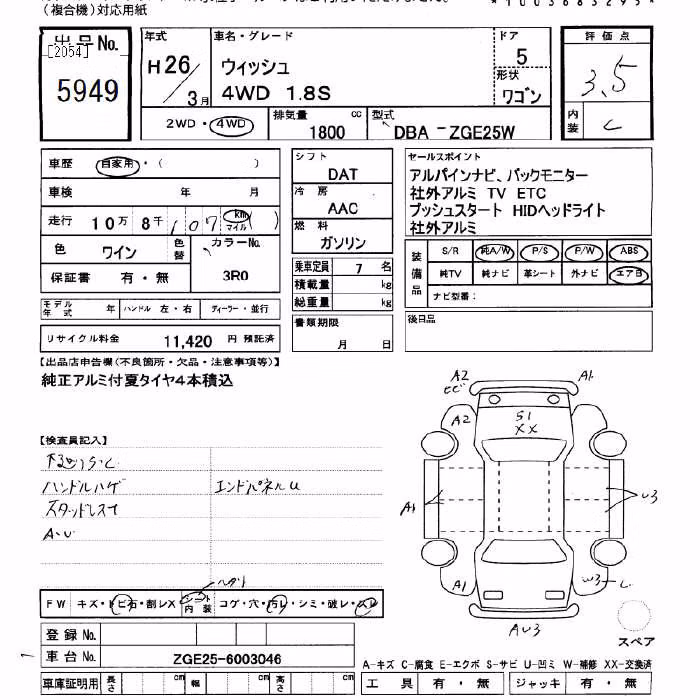 (複合機)対応用紙
*1003683295*
出品No.
[2054]
5949
年式
H26/3月
車名・グレード
ウィッシュ
4WD 1.8S
ドア
5
形状
ワゴン
評価点
3.5
内装
C
2WD・4WD
排気量 cc
1800
型式
DBA-ZGE25W
車歴 自家用・( )
車検 年 月
走行 10万 8千 107 km マイル ( )
色 ワイン 色替 カラーNo.
3R0
保証書 有・無
モデル年式 年 ハンドル 左・右 ディーラー・並行
リサイクル料金 11,420 円 預託済
シフト
DAT
冷房
AAC
燃料
ガソリン
乗車定員 7 名
積載量 kg
総重量 kg
書類期限
月 日
セールスポイント
アルパインナビ、バックモニター
社外アルミ TV ETC
プッシュスタート HIDヘッドライト
社外アルミ
装備品
S/R 純A/W P/S P/W ABS
純TV 純ナビ 革シート 外ナビ エアB
ナビ型番:
後日品
【出品店申告欄(不良箇所・欠品・注意事項等)】
純正アルミ付夏タイヤ4本積込
【検査員記入】
下回りS・C
ハンドルハゲ エンドパネルU
スタッドレス
A・U
ヘタリ
FW キズ・トビ石・割レX シート内装 コゲ・穴・汚レ・シミ・破レ・スレ
登録No.
車台No. ZGE25-6003046
車庫証明用 長さ cm 幅 cm 高さ cm
A2
ヒビ
A1
A2
S1
XX
A1
U3
A1
W3
AU3
スペア
A-キズ C-腐食 E-エクボ S-サビ U-凹ミ W-補修 XX-交換済
工具 有・無 ジャッキ 有・無